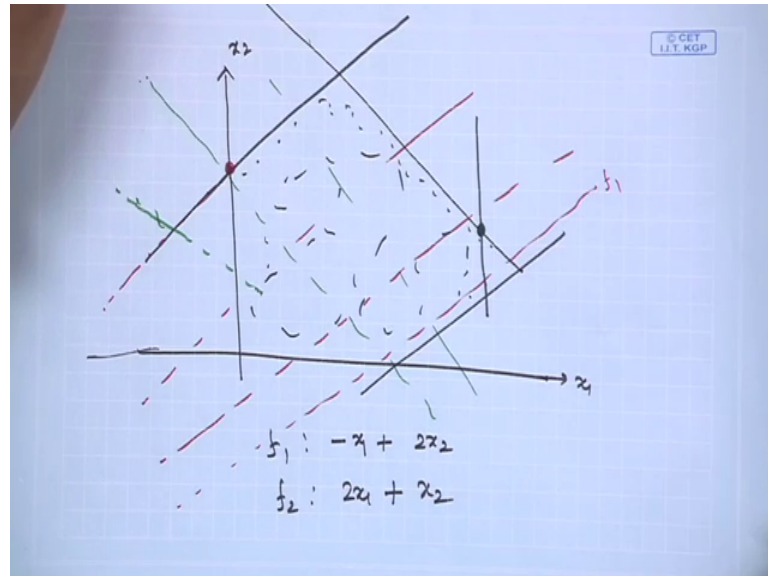 © CET
I.I.T. KGP
x₂
f₁
x₁
f₁ : -x₁ + 2x₂
f₂ : 2x₁ + x₂